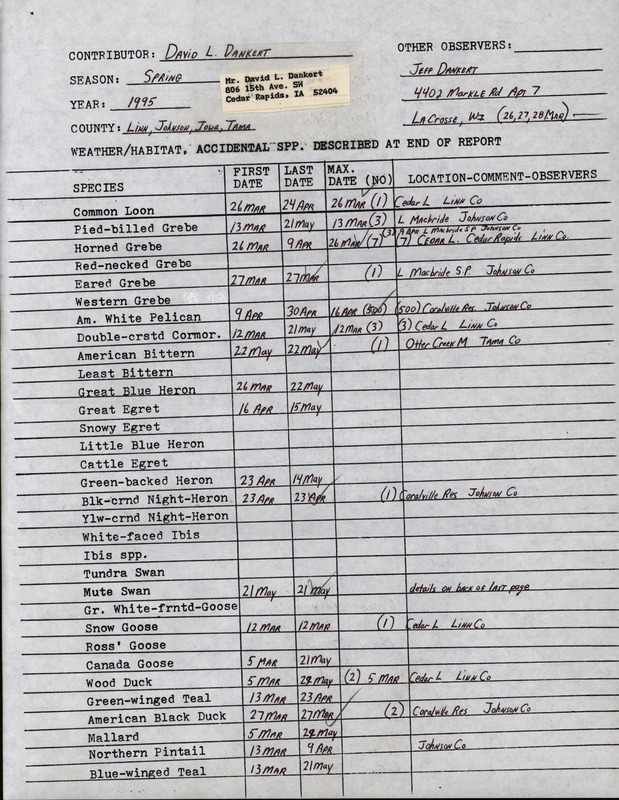 CONTRIBUTOR: DAVID L. DANKERT OTHER OBSERVERS:
SEASON: SPRING JEFF DANKERT
Mr. David L. Dankert
806 15th Ave. SW
Cedar Rapids, IA 52404
YEAR: 1995 4402 MARKLE Rd APT 7
COUNTY: LINN, JOHNSON, IOWA, TAMA LACROSSE, WI (26,27,28 MAR)
WEATHER/HABITAT, ACCIDENTAL SPP. DESCRIBED AT END OF REPORT
SPECIES FIRST DATE LAST DATE MAX. DATE (NO) LOCATION-COMMENT-OBSERVERS
Common Loon 26 MAR 24 APR 26 MAR (1) Cedar L LINN Co
Pied-billed Grebe 13 MAR 21 May 13 MAR (3) L Macbride JOHNSON Co
(3) 9 APR L Macbride S.P. JOHNSON Co
Horned Grebe 26 MAR 9 APR 26 MAR (7) (7) CEDAR L. Cedar Rapids LINN Co.
Red-necked Grebe
Eared Grebe 27 MAR 27 MAR (1) L Macbride S.P. JOHNSON Co
Western Grebe
Am. White Pelican 9 APR 30 APR 16 APR (500) (500) Coralville Res. JOHNSON Co
Double-crstd Cormor. 12 MAR 21 May 12 MAR (3) (3) Cedar L LINN Co
American Bittern 22 May 22 May (1) Otter Creek M TAMA Co
Least Bittern
Great Blue Heron 26 MAR 22 May
Great Egret 16 APR 15 May
Snowy Egret
Little Blue Heron
Cattle Egret
Green-backed Heron 23 APR 14 May
Blk-crnd Night-Heron 23 APR 23 APR (1) Coralville Res JOHNSON Co
Ylw-crnd Night-Heron
White-faced Ibis
Ibis spp.
Tundra Swan
Mute Swan 21 May 21 May details on back of last page
Gr. White-frntd-Goose
Snow Goose 12 MAR 12 MAR (1) Cedar L LINN Co
Ross' Goose
Canada Goose 5 MAR 21 May
Wood Duck 5 MAR May (2) 5 MAR Cedar L LINN Co
Green-winged Teal 13 MAR 23 APR
American Black Duck 27 MAR 27 MAR (2) Coralville Res JOHNSON Co
Mallard 5 MAR May
Northern Pintail 13 MAR 9 APR JOHNSON Co
Blue-winged Teal 13 MAR 21 May